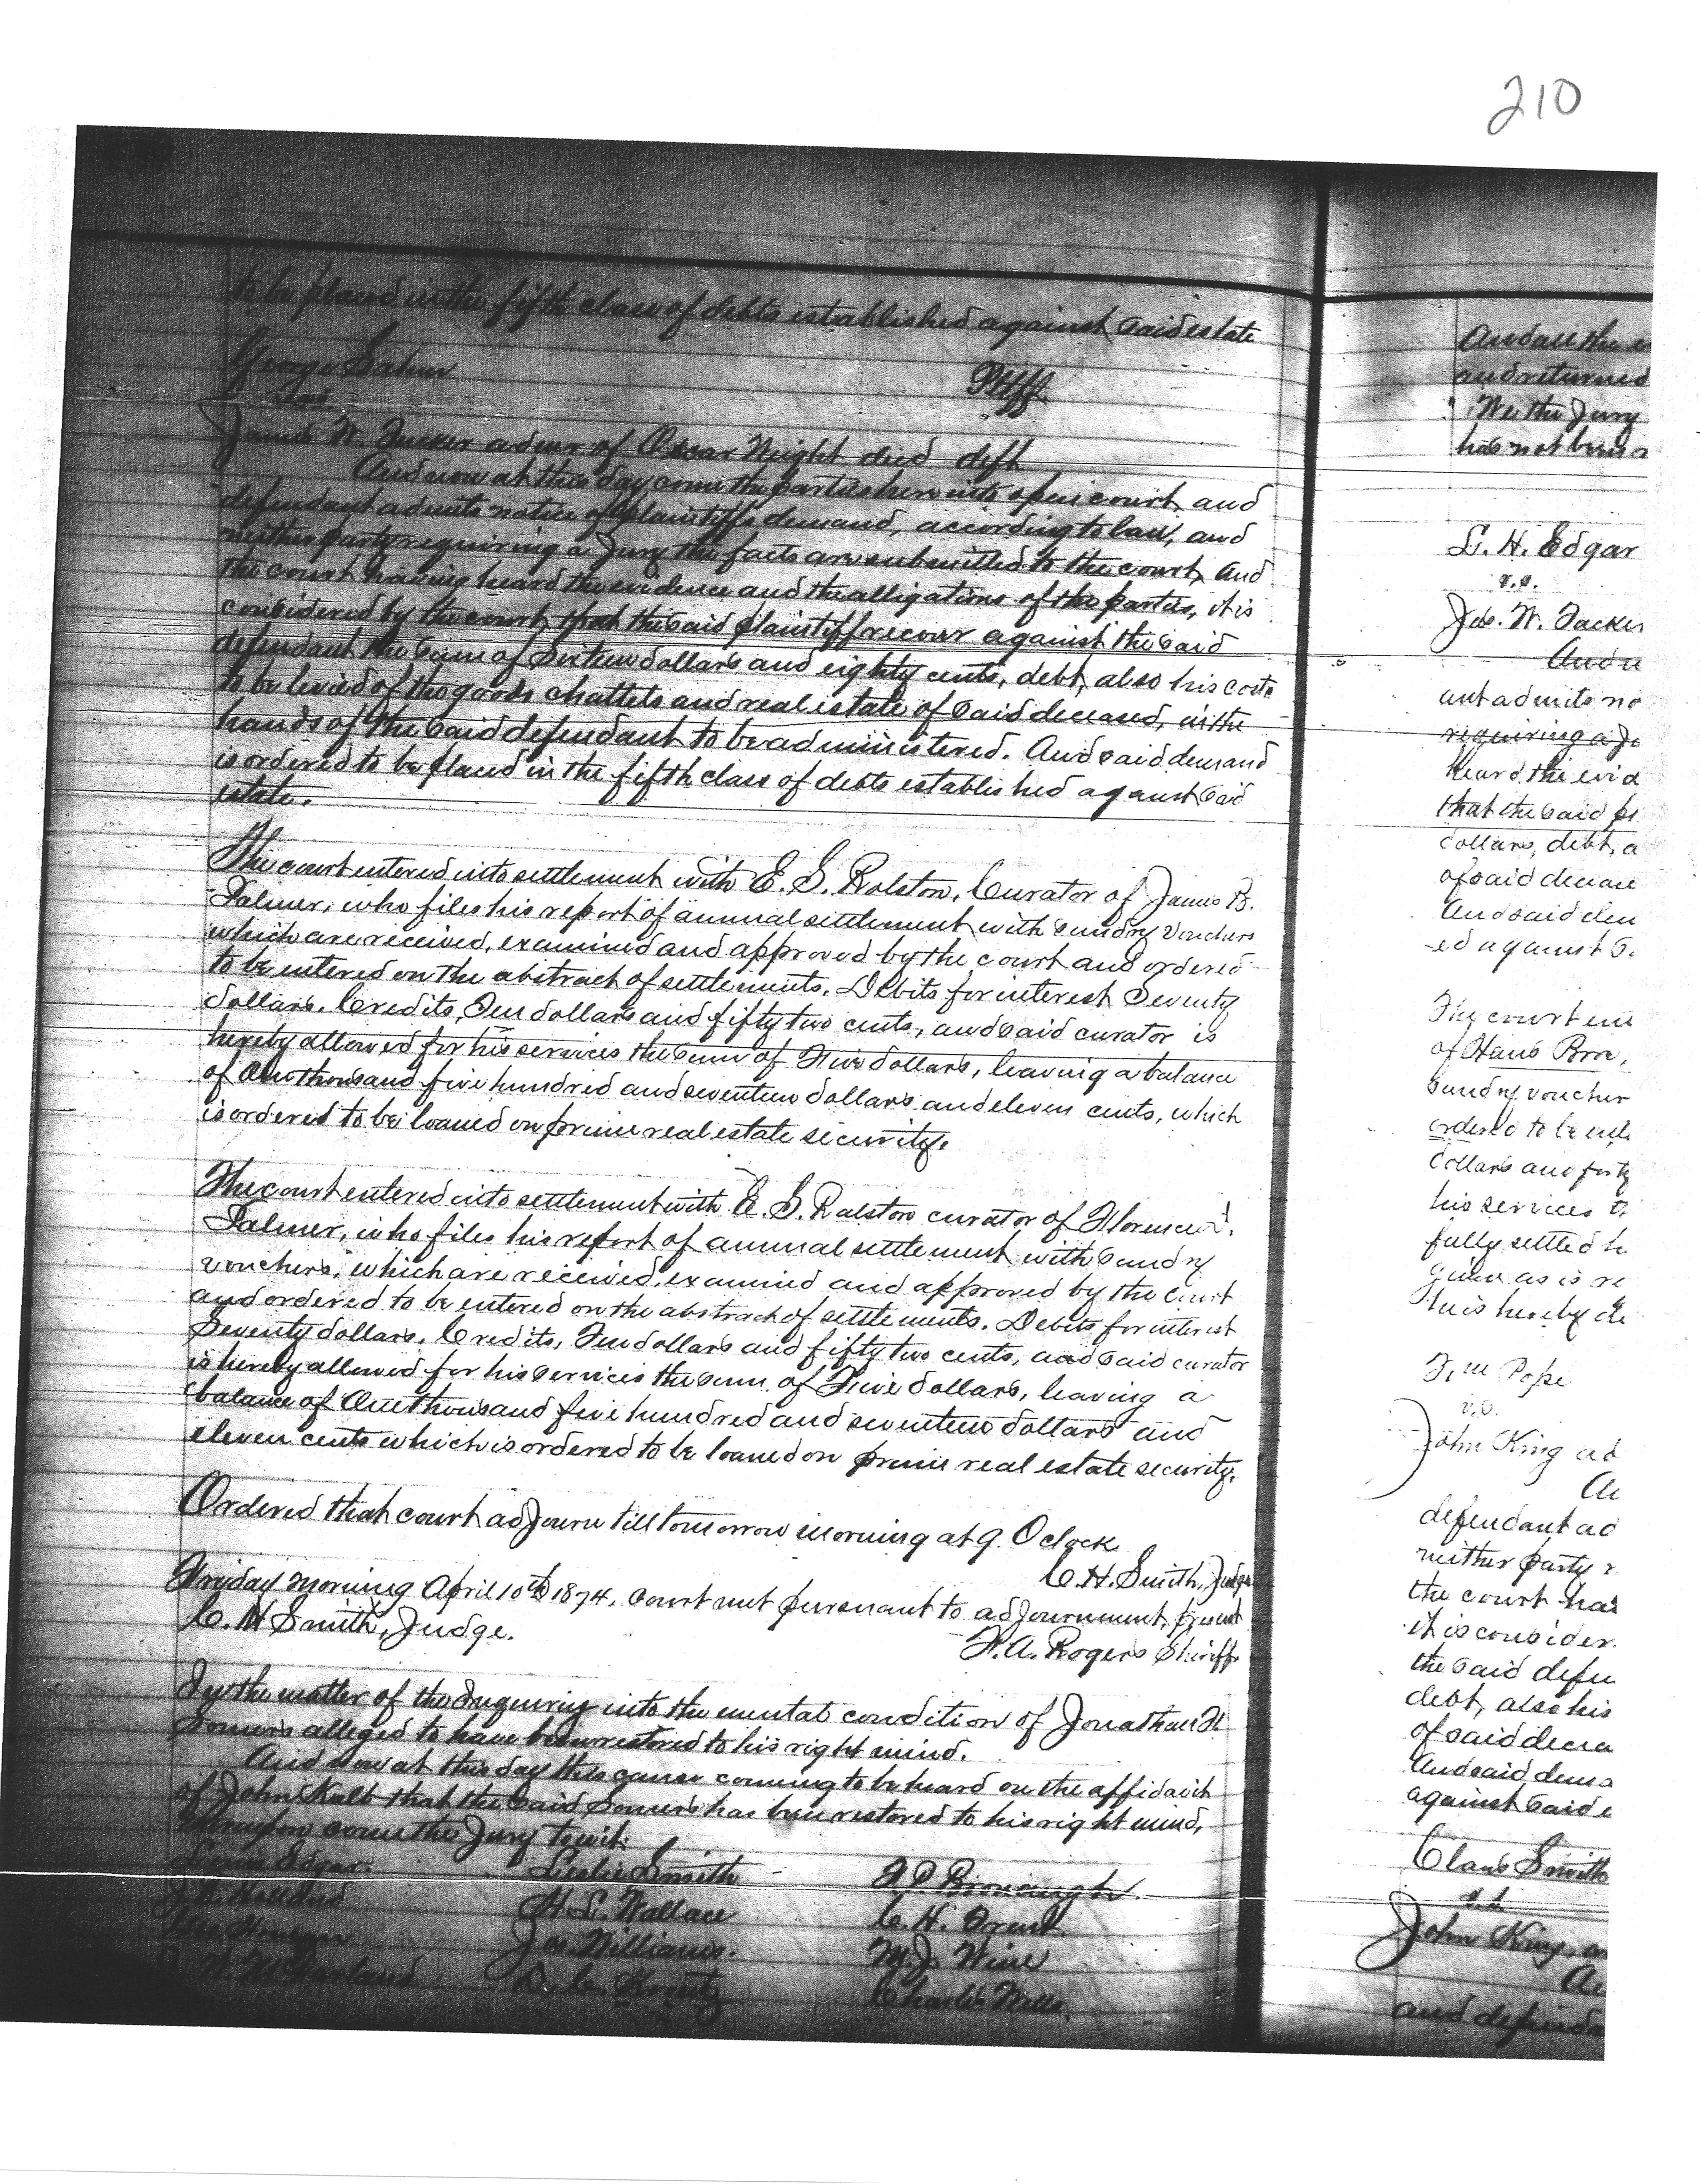 210
to be placed in the fifth class of debts established against said estate
George Pltff
vs
James W. Tucker admr of Oscar Wright decd deft
And now at this day come the parties herein into open court, and
defendant admits notice of plaintiffs demand, according to law, and
neither party requiring a Jury the facts are submitted to the court, and
the court having heard the evidence and the alligations of the parties, it is
considered by the court that the said plaintiff recover against the said
defendant the sum of Sixteen dollars and eighty cents, debt, also his costs
to be levied of the goods chattels and real estate of said deceased, in the
hands of the said defendant to be administered. And said demand
is ordered to be placed in the fifth class of debts established against said
estate.
The court entered into settlement with E. S. Ralston, Curator of James B.
Palmer, who files his report of annual settlement with sundry vouchers
which are received, examined and approved by the court and ordered
to be entered on the abstract of settlements. Debits for interest Seventy
dollars. Credits, Ten dollars and fifty two cents, and said curator is
hereby allowed for his services the sum of Five dollars, leaving a balance
of One thousand five hundred and seventeen dollars and eleven cents, which
is ordered to be loaned on prime real estate security.
The court entered into settlement with E. S. Ralston curator of Florence
Palmer, who files his report of annual settlement with sundry
vouchers, which are received, examined and approved by the court
and ordered to be entered on the abstract of settlements. Debits for interest
Seventy dollars. Credits, Ten dollars and fifty two cents, and said curator
is hereby allowed for his services the sum of Five dollars, leaving a
balance of One thousand five hundred and seventeen dollars and
eleven cents which is ordered to be loaned on prime real estate security.
Ordered that court adjourn till tomorrow morning at 9. Oclock
C. H. Smith, Judge
Friday morning April 10th 1874. Court met pursuant to adjournment, present
C. H Smith, Judge. F. A. Rogers Sheriff
In the matter of the Inquiry into the mental condition of Jonathan H
Somers alleged to have been restored to his right mind.
And now at this day this cause coming to be heard on the affidavit
of John Kalb that the said Somers has been restored to his right mind,
Whereupon come the Jury towit:
Lewis Edgar. Leslie Smith A. P. Bronaugh
H. L. Wallace C. H. Grant
Jos. Williams. M. J. Wine
D. C. Charles Wells
And all the
and returned
We the Jury
has not been
L. H. Edgar
v.s.
Jas. W. Tucker
And n
ant admits no
requiring a Ju
heard the evid
that the said pl
dollars, debt, a
of said deceas
And said dem
ed against s
The court en
of Hans Bros,
sundry voucher
ordered to be ent
dollars and forty
his services t
fully settled h
given as is re
tu is hereby di
Pope
v.s.
John King ad
An
defendant ad
neither party r
the court hav
it is consider
the said defen
debt, also his
of said decea
And said dema
against said e
Claus Smith
v.s.
John King a
An
and defenda